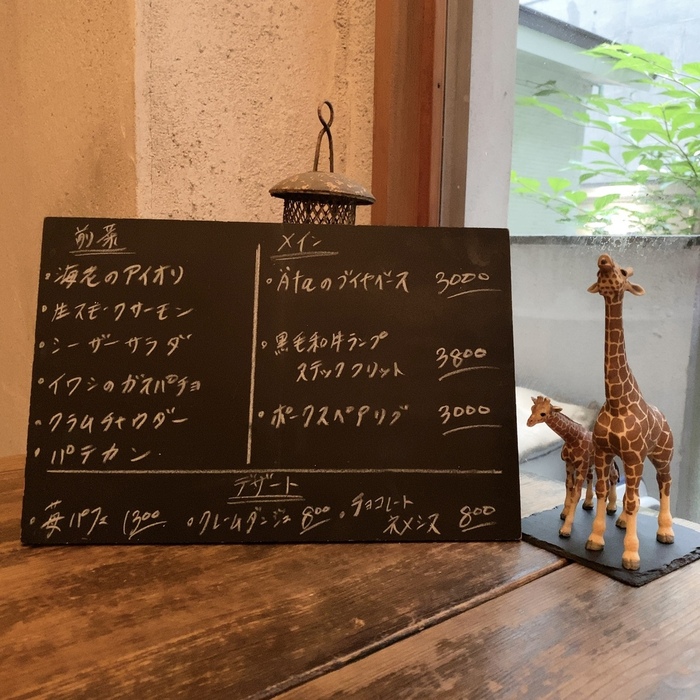 前菜
・海老のアイオリ
・生スモークサーモン
・シーザーサラダ
・イワシのガスパチョ
・クラムチャウダー
・パテカン
メイン
・Ataのブイヤベース 3000
・黒毛和牛ランプ
ステックフリット 3800
・ポークスペアリブ 3000
デザート
・苺パフェ 1300 ・クレームダンジュ 800 ・チョコレート
ネメシス 800